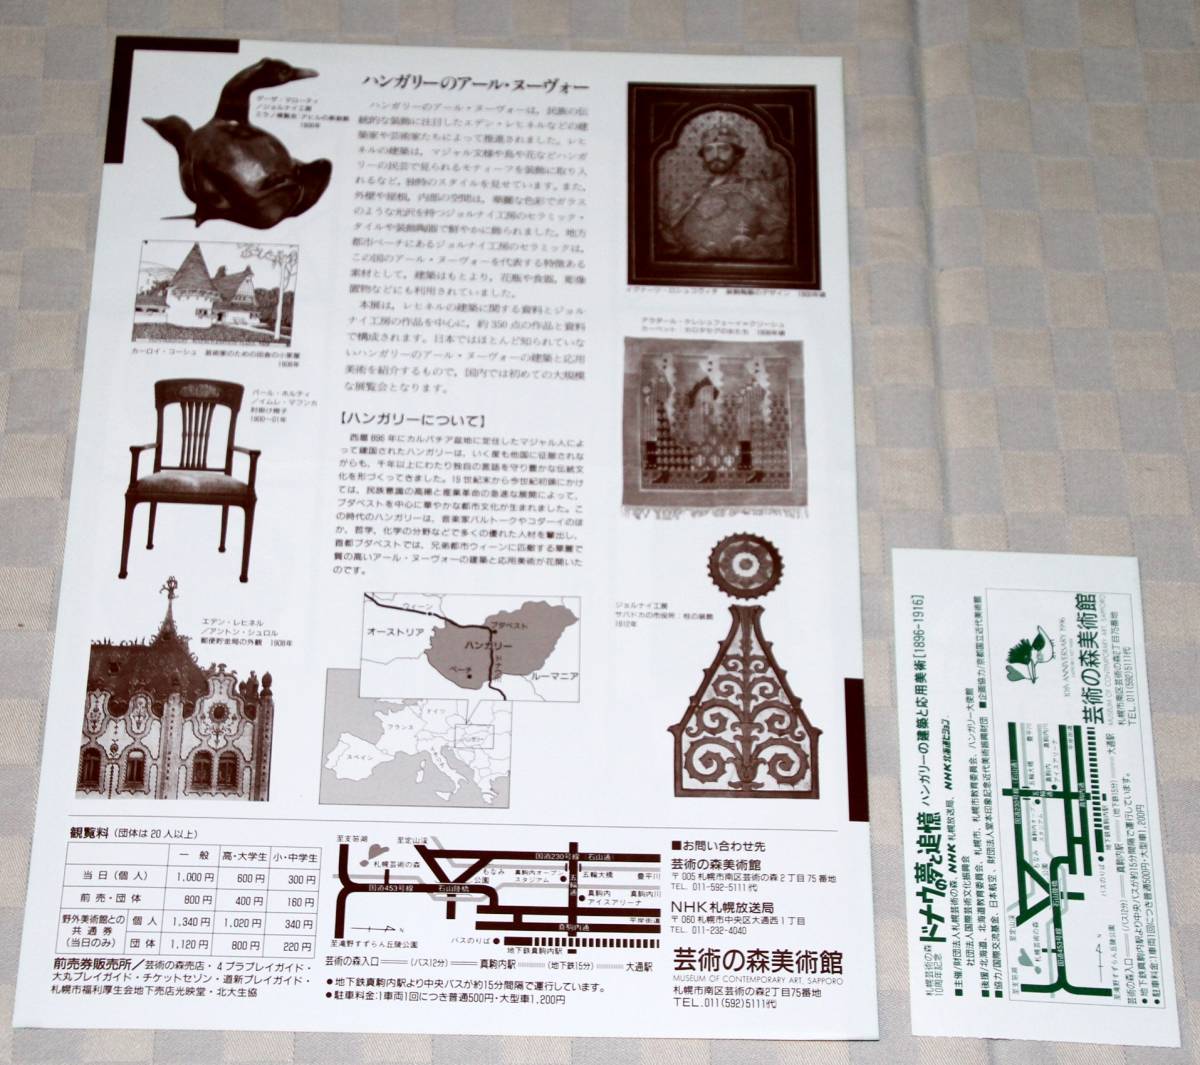 ハンガリーのアール・ヌーヴォー
ハンガリーのアール・ヌーヴォーは，民族の伝
統的な装飾に注目したエデン・レヒネルなどの建
築家や芸術家たちによって推進されました。レヒ
ネルの建築は，マジャル文様や鳥や花などハンガ
リーの民芸で見られるモティーフを装飾に取り入
れるなど，独特のスタイルを見せています。また，
外壁や屋根，内部の空間は，華麗な色彩でガラス
のような光沢を持つジョルナイ工房のセラミック・
タイルや装飾陶器で鮮やかに飾られました。地方
都市ペーチにあるジョルナイ工房のセラミックは，
この国のアール・ヌーヴォーを代表する特徴ある
素材として，建築はもとより，花瓶や食器，彫像
置物などにも利用されていました。
本展は，レヒネルの建築に関する資料とジョル
ナイ工房の作品を中心に，約350点の作品と資料
で構成されます。日本ではほとんど知られていな
いハンガリーのアール・ヌーヴォーの建築と応用
美術を紹介するもので，国内では初めての大規模
な展覧会となります。
【ハンガリーについて】
西暦896年にカルパチア盆地に定住したマジャル人によ
って建国されたハンガリーは、いく度も他国に征服されな
がらも、千年以上にわたり独自の言語を守り豊かな伝統文
化を形づくってきました。19世紀末から今世紀初頭にかけ
ては、民族意識の高揚と産業革命の急速な展開によって、
ブダペストを中心に華やかな都市文化が生まれました。こ
の時代のハンガリーは、音楽家バルトークやコダーイのほ
か、哲学、化学の分野などで多くの優れた人材を輩出し、
首都ブダペストでは、兄弟都市ウィーンに匹敵する華麗で
質の高いアール・ヌーヴォーの建築と応用美術が花開いた
のです。
ゲーザ・マローティ
／ジョルナイ工房
カーロイ・コーシュ 芸術家のための田舎の小家屋
1908年
パール・ホルティ
／イムレ・マフンカ
肘掛け椅子
1900～01年
エデン・レヒネル
／アントン・シュロル
郵便貯金局の外観 1908年
アラダール・クレシュフェーイ＝クリーシュ
ジョルナイ工房
サバドカの市役所：柱の装飾
1912年
ウィーン
ブダペスト
オーストリア
ハンガリー
ペーチ
ルーマニア
ドイツ
フランス
スペイン
イタリア
観覧料（団体は20人以上）
一 般 高・大学生 小・中学生
当 日（個 人） 1,000円 600円 300円
前 売・団 体 800円 400円 160円
野外美術館との共通券（当日のみ） 個 人 1,340円 1,020円 340円
団 体 1,120円 800円 220円
前売券販売所／芸術の森売店・4プラプレイガイド・
大丸プレイガイド・チケットセゾン・道新プレイガイド・
札幌市福利厚生会地下売店光映堂・北大生協
至支笏湖
至定山渓
札幌芸術の森
国道230号線
石山通
国道453号線
石山陸橋
もなみ
公園
真駒内オープン
スタジアム
五輪大橋
豊平川
真駒内
アイスアリーナ
真駒内川
平岸街道
真駒内通
五輪通
至滝野すずらん丘陵公園
バスのりば
地下鉄真駒内駅
芸術の森入口══(バス12分)══真駒内駅══(地下鉄15分)══大通駅
●地下鉄真駒内駅より中央バスが約15分間隔で運行しています。
●駐車料金:1車両1回につき普通500円・大型車1,200円
■お問い合わせ先
芸術の森美術館
〒005 札幌市南区芸術の森2丁目75番地
TEL. 011-592-5111代
NHK札幌放送局
〒060 札幌市中央区大通西1丁目
TEL. 011-232-4040
芸術の森美術館
MUSEUM OF CONTEMPORARY ART, SAPPORO
札幌市南区芸術の森2丁目75番地
TEL.011(592)5111代
札幌芸術の森
10周年記念
ドナウの夢と追憶 ハンガリーの建築と応用美術[1896-1916]
■主催/財団法人札幌芸術の森、NHK札幌放送局、NHK北海道ビジョン
社団法人国際芸術文化振興会
■後援/北海道、北海道教育委員会、札幌市、札幌市教育委員会、ハンガリー大使館
■協力/国際交流基金、日本航空、財団法人堂本印象記念近代美術振興財団 ■企画協力/京都国立近代美術館
10th ANNIVERSARY 1996
芸術の森美術館
MUSEUM OF CONTEMPORARY ART, SAPPORO
札幌市南区芸術の森2丁目75番地
TEL. 011(592)5111代
至支笏湖
至定山渓
札幌芸術の森
国道453号線
石山陸橋
国道230号線
石山通
もなみ
公園
真駒内オープン
スタジアム
五輪大橋
豊平川
真駒内
アイスアリーナ
真駒内川
平岸街道
真駒内通
至滝野すずらん丘陵公園
バスのりば
地下鉄真駒内駅
芸術の森入口══(バス12分)══真駒内駅══(地下鉄15分)══大通駅
●地下鉄真駒内駅より中央バスが約15分間隔で運行しています。
●駐車料金:1車両1回につき普通500円・大型車1,200円